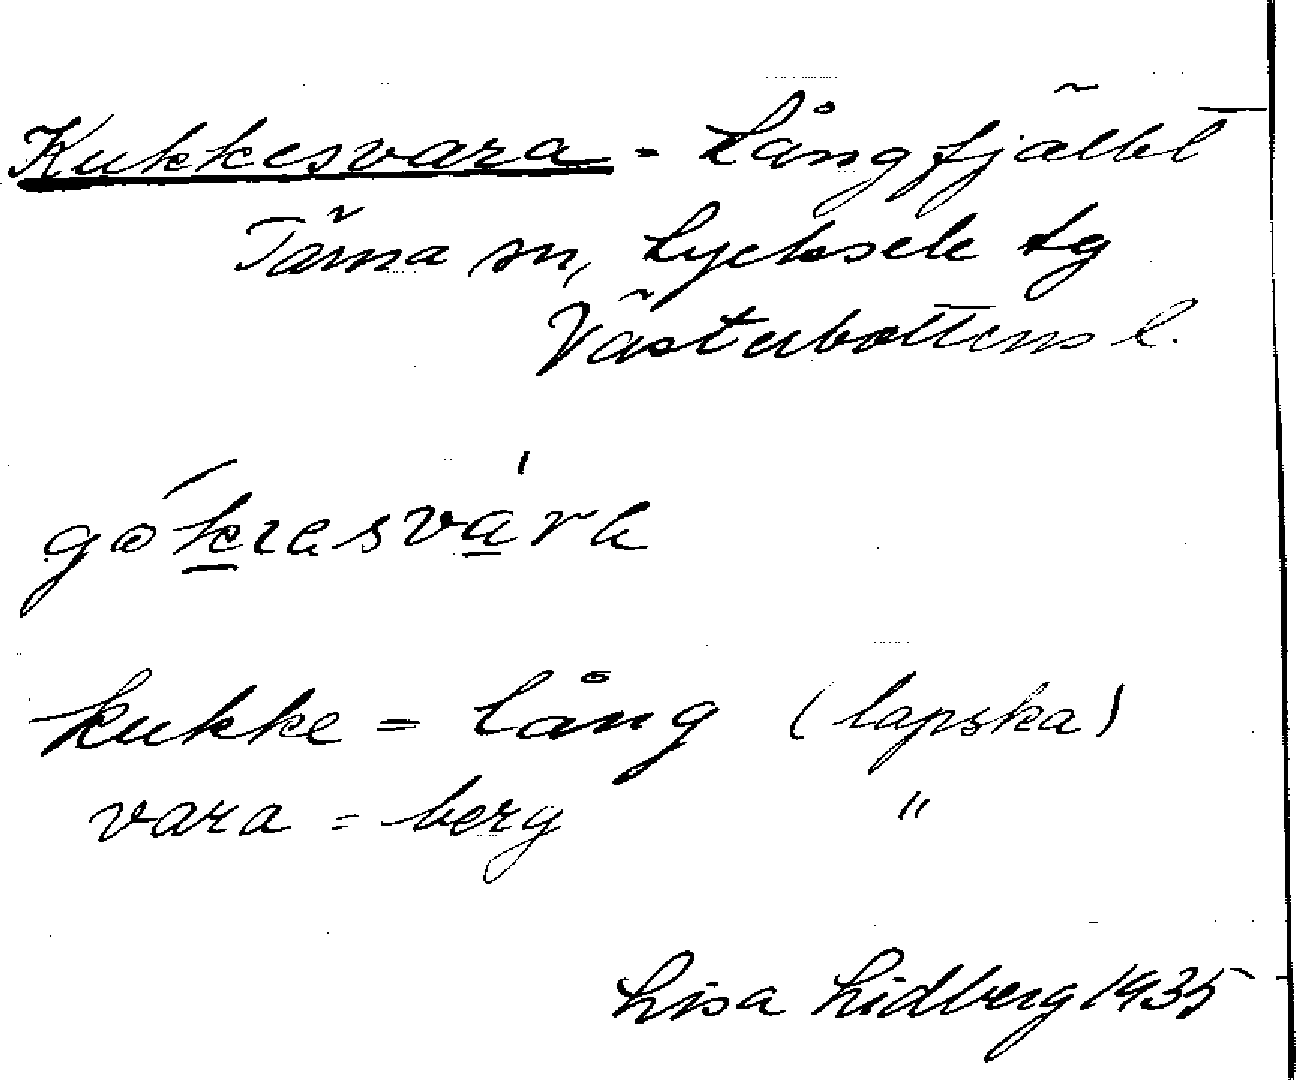 Kukkesvara - Långfjället
Tärna sn, Lycksele lg
Västerbottens l.
kukke = lång (lapska)
vara = berg "
Lisa Lidberg 1935